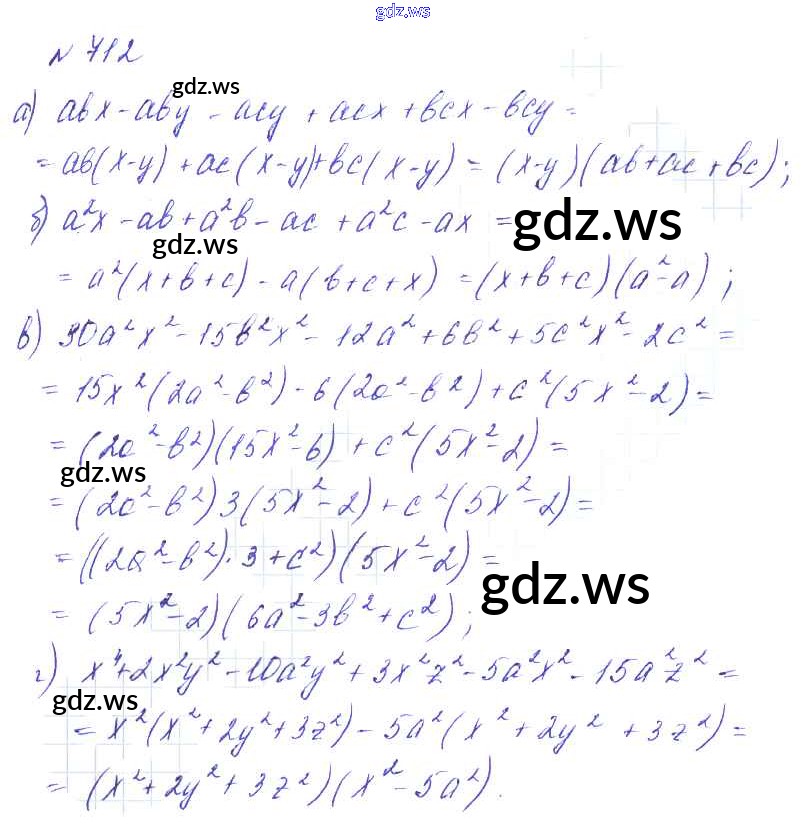 gdz.ws
№ 712
gdz.ws
а) abx - aby - acy + acx + bcx - bcy =
= ab(x-y) + ac(x-y) + bc(x-y) = (x-y)(ab+ac+bc);
б) a²x - ab + a²b - ac + a²c - ax =
gdz.ws
gdz.ws
= a²(x+b+c) - a(b+c+x) = (x+b+c)(a²-a);
в) 30a²x² - 15b²x² - 12a² + 6b² + 5c²x² - 2c² =
= 15x²(2a²-b²) - 6(2a²-b²) + c²(5x²-2) =
= (2a²-b²)(15x²-6) + c²(5x²-2) =
gdz.ws
= (2a²-b²)3(5x²-2) + c²(5x²-2) =
= ((2a²-b²)·3+c²)(5x²-2) =
gdz.ws
= (5x²-2)(6a²-3b²+c²);
г) x⁴+2x²y² - 10a²y² + 3x²z² - 5a²x² - 15a²z² =
gdz.ws
= x²(x²+2y²+3z²) - 5a²(x²+2y²+3z²) =
= (x²+2y²+3z²)(x²-5a²).